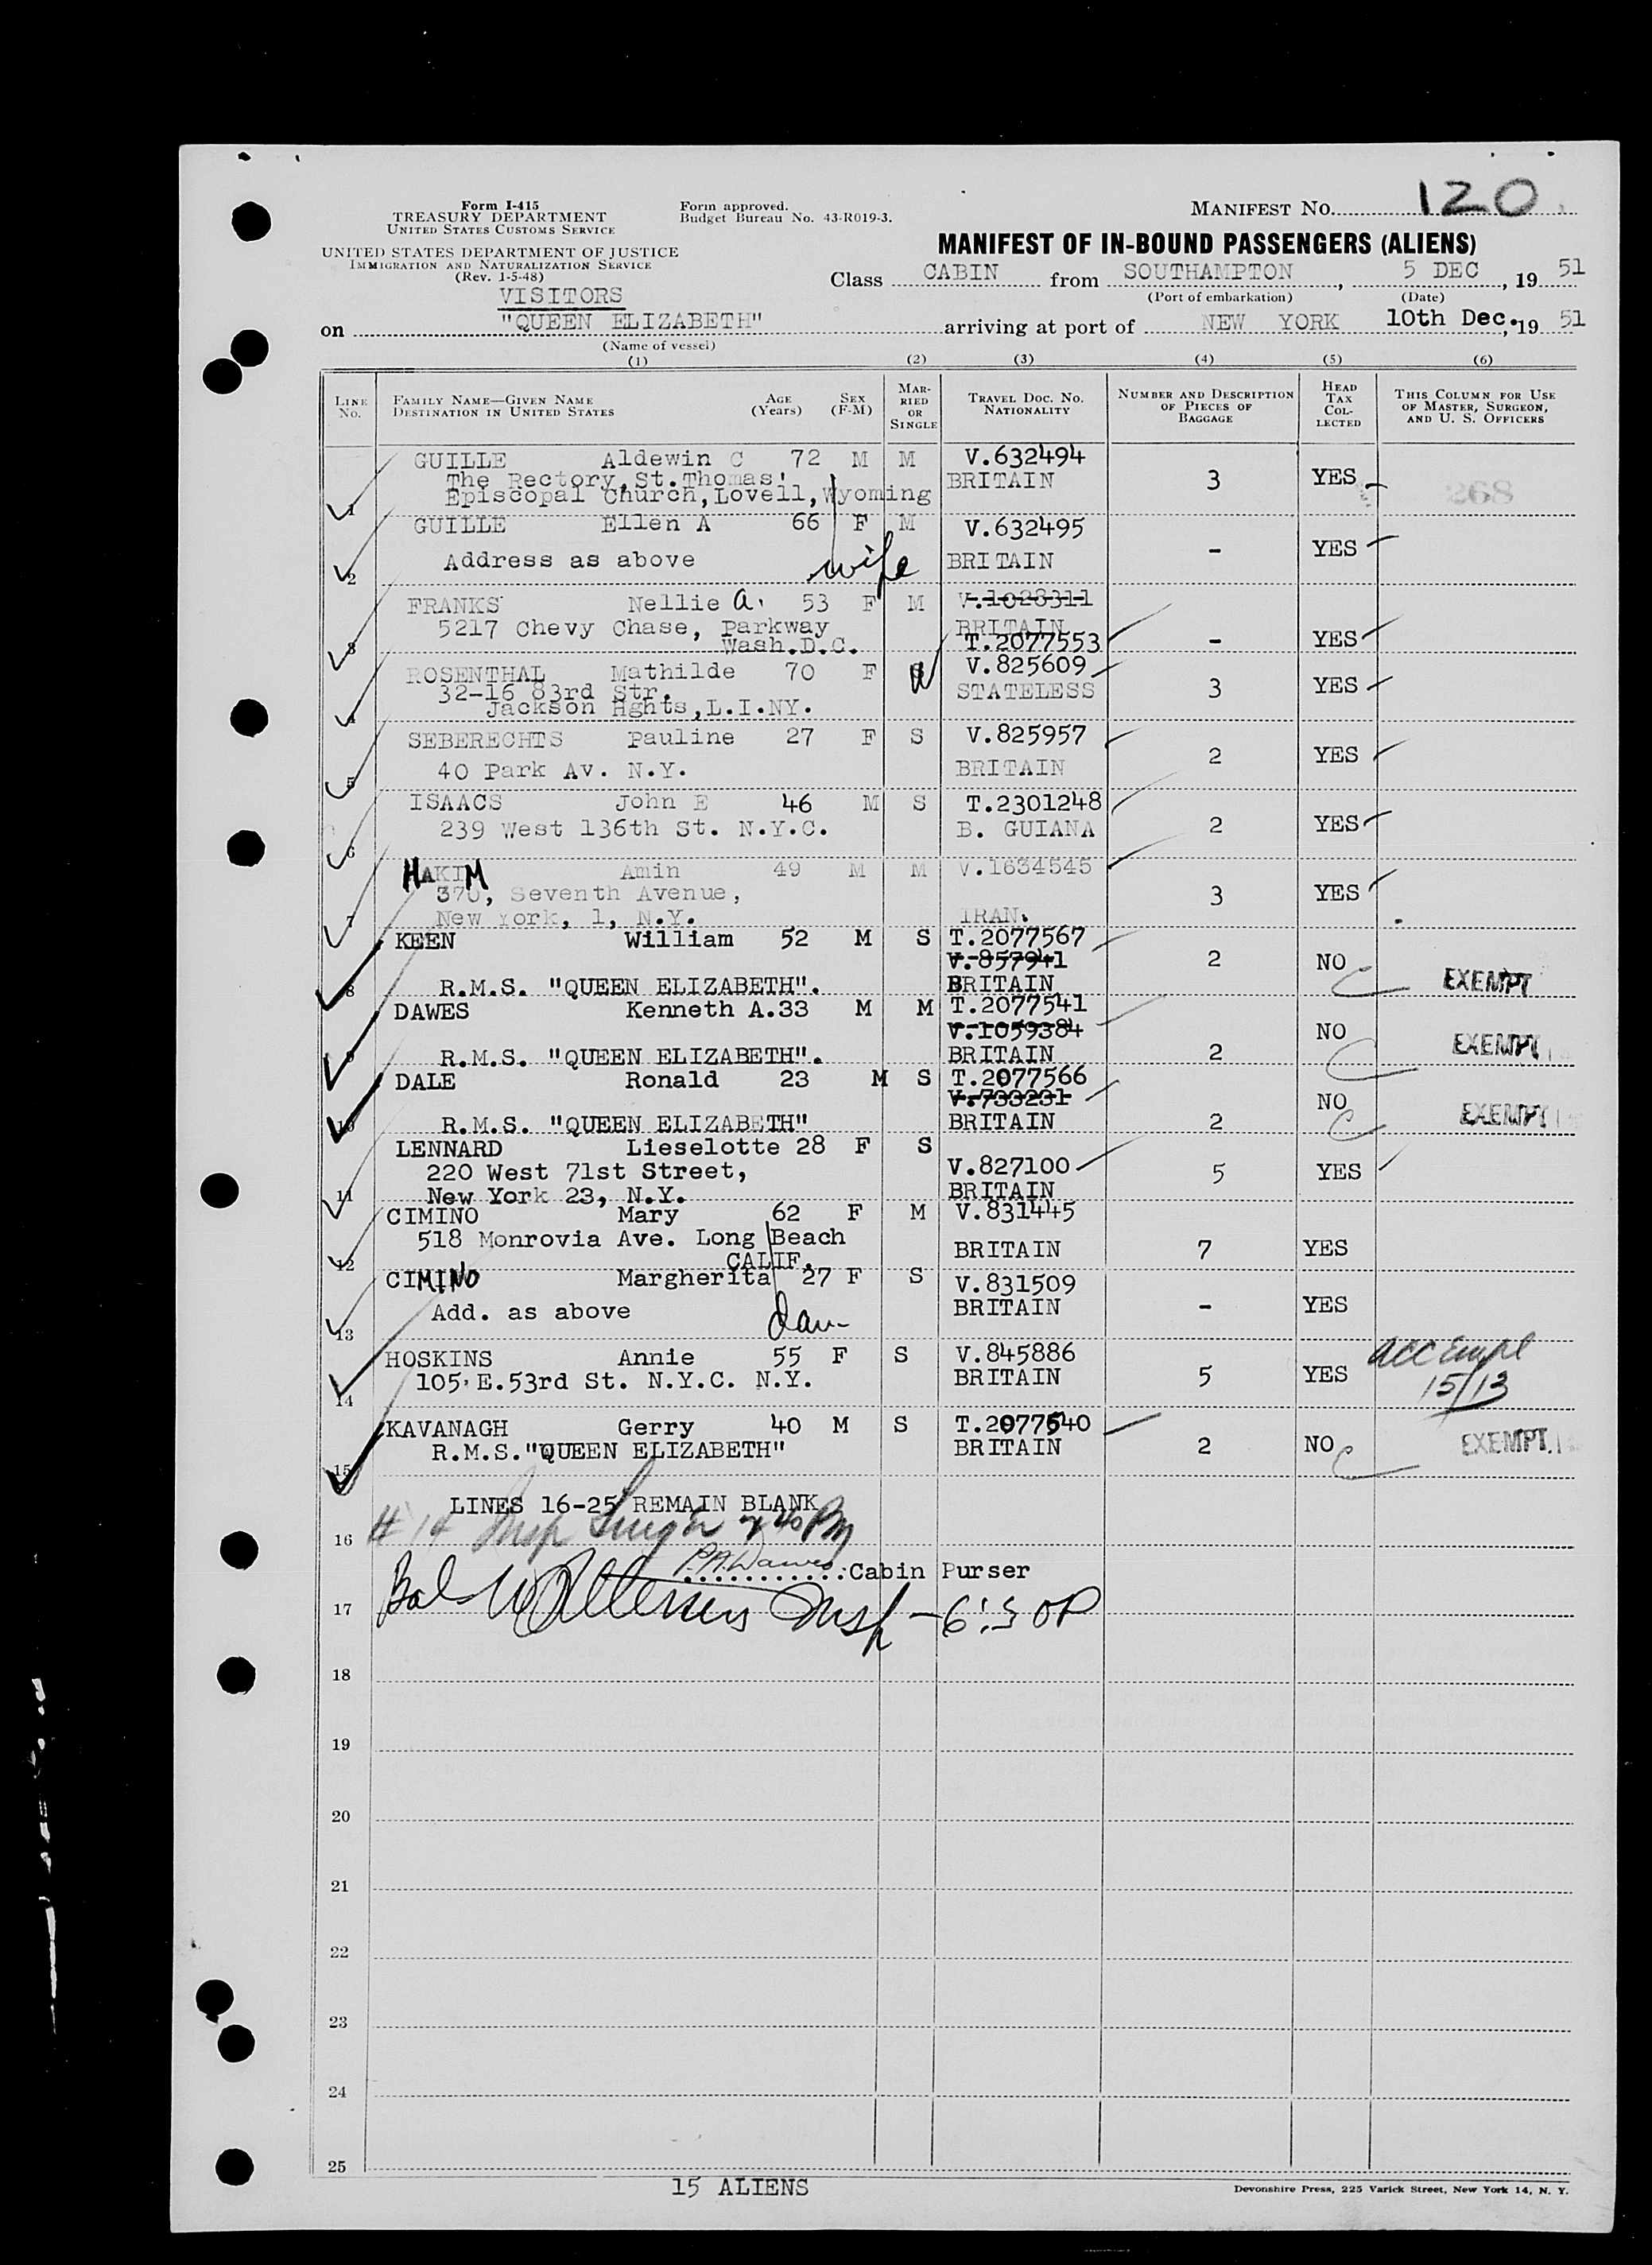 Form I-415
TREASURY DEPARTMENT
UNITED STATES CUSTOMS SERVICE
UNITED STATES DEPARTMENT OF JUSTICE
IMMIGRATION AND NATURALIZATION SERVICE
(Rev. 1-5-48)
Form approved.
Budget Bureau No. 43-R019-3.
MANIFEST No. 120
MANIFEST OF IN-BOUND PASSENGERS (ALIENS)
Class CABIN from SOUTHAMPTON, 5 DEC, 19 51
(Port of embarkation) (Date)
VISITORS
on "QUEEN ELIZABETH" arriving at port of NEW YORK 10th Dec., 19 51
(Name of vessel)
(1) (2) (3) (4) (5) (6)
LINE No. FAMILY NAME—GIVEN NAME DESTINATION IN UNITED STATES AGE (Years) SEX (F-M) MARRIED OR SINGLE TRAVEL DOC. NO. NATIONALITY NUMBER AND DESCRIPTION OF PIECES OF BAGGAGE HEAD TAX COLLECTED THIS COLUMN FOR USE OF MASTER, SURGEON, AND U. S. OFFICERS
GUILLE Aldewin C 72 M M V.632494
The Rectory, St.Thomas' BRITAIN 3 YES 268
1 Episcopal Church, Lovell, Wyoming
GUILLE Ellen A 66 F M V.632495
2 Address as above wife BRITAIN - YES
FRANKS Nellie A. 53 F M V.1028311
5217 Chevy Chase, Parkway BRITAIN
3 Wash.D.C. T.2077553 - YES
ROSENTHAL Mathilde 70 F W V.825609
32-16 83rd Str. STATELESS 3 YES
4 Jackson Hghts, L.I.NY.
SEBERECHTS Pauline 27 F S V.825957
5 40 Park Av. N.Y. BRITAIN 2 YES
ISAACS John E 46 M S T.2301248
6 239 West 136th St. N.Y.C. B. GUIANA 2 YES
HAKIM Amin 49 M M V.1634545
370, Seventh Avenue, 3 YES
7 New York, 1, N.Y. IRAN.
KEEN William 52 M S T.2077567
V.857941 2 NO
8 R.M.S. "QUEEN ELIZABETH". BRITAIN EXEMPT
DAWES Kenneth A. 33 M M T.2077541
V.1059384 NO
9 R.M.S. "QUEEN ELIZABETH". BRITAIN 2 EXEMPT
DALE Ronald 23 M S T.2077566
V.733231 NO
10 R.M.S. "QUEEN ELIZABETH" BRITAIN 2 EXEMPT
LENNARD Lieselotte 28 F S
220 West 71st Street, V.827100 5 YES
11 New York 23, N.Y. BRITAIN
CIMINO Mary 62 F M V.831445
518 Monrovia Ave. Long Beach BRITAIN 7 YES
12 CALIF.
CIMINO Margherita 27 F S V.831509
Add. as above dau BRITAIN - YES
13
HOSKINS Annie 55 F S V.845886
105, E.53rd St. N.Y.C. N.Y. BRITAIN 5 YES
14 15/13
KAVANAGH Gerry 40 M S T.2077540
R.M.S."QUEEN ELIZABETH" BRITAIN 2 NO EXEMPT
15
LINES 16-25 REMAIN BLANK
# 14 Insp
16
Cabin Purser
17 Insp - 6:30P
18
19
20
21
22
23
24
25
15 ALIENS
Devonshire Press, 225 Varick Street, New York 14, N. Y.